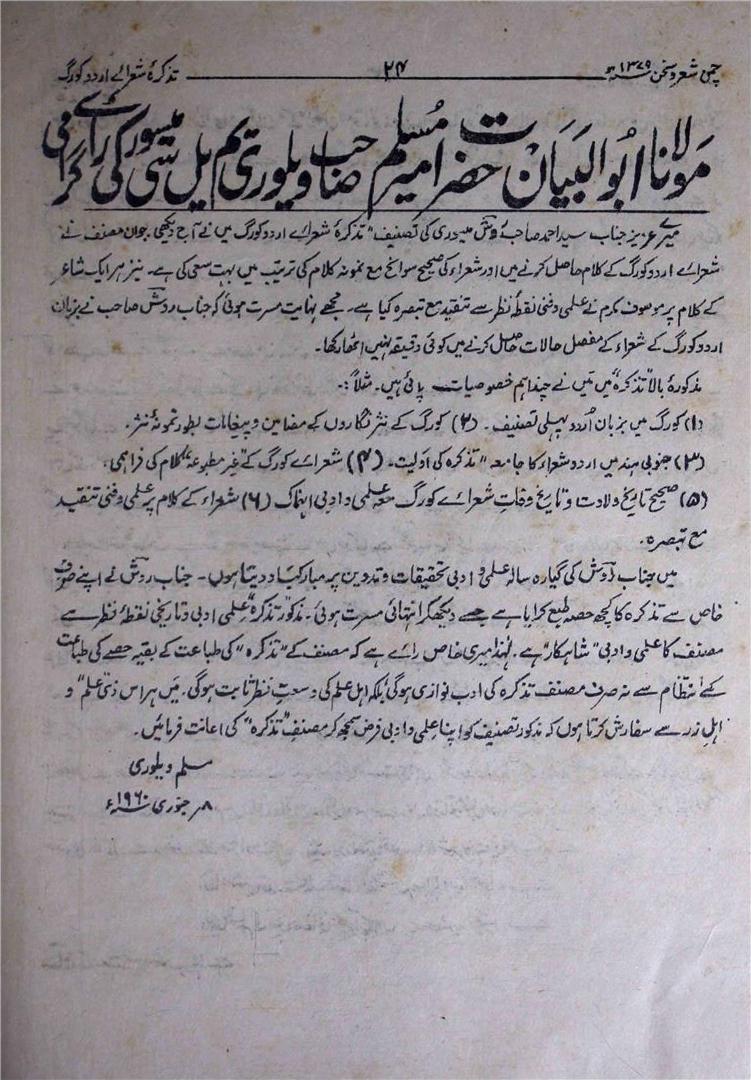 چمن شعر و سخن ۱۳۷۹ھ ۲۴ تذکرۂ شعرائے اردو کورگ
مولانا ابوالبیان حضرت امیر مسلم صاحب ویلوری یم یل سی میسور کی رائے گرامی
میرے عزیز جناب سید احمد صاحب روش میسوری کی تصنیف "تذکرۂ شعرائے اردو کورگ میں نے آج دیکھی۔ جوان مصنف نے
شعرائے اردو کورگ کے کلام حاصل کرنے میں اور شعراء کی صحیح سوانح مع نمونہ کلام کی ترتیب میں بہت سعی کی ہے۔ نیز ہر ایک شاعر
کے کلام پر موصوف مکرم نے علمی و فنی نقطۂ نظر سے تنقید مع تبصرہ کیا ہے۔ مجھے نہایت مسرت ہوئی کہ جناب روش صاحب نے بزبان
اردو کورگ کے شعراء کے مفصل حالات حاصل کرنے میں کوئی دقیقہ نہیں اٹھا رکھا۔
مذکورۂ بالا "تذکرہ" میں میں نے چند اہم خصوصیات پائی ہیں۔ مثلاً:۔
(۱) کورگ میں بزبان اُردو پہلی تصنیف۔ (۲) کورگ کے نثر نگاروں کے مضامین و پیغامات بطور نمونۂ نثر۔
(۳) جنوبی ہند میں اردو شعراء کا جامعہ "تذکرہ کی اولیت۔ (۴) شعرائے کورگ کے "غیر مطبوعہ" کلام کی فراہمی۔
(۵) صحیح تاریخ ولادت و تاریخ وفات شعرائے کورگ معہ علمی و ادبی انہماک (۶) شعراء کے کلام پر علمی و فنی تنقید
مع تبصرہ۔
میں جناب روش کی گیارہ سالہ علمی و ادبی تحقیقات و تدوین پر مبارکباد دیتا ہوں۔ جناب روش نے اپنے صرف
خاص سے تذکرہ کا کچھ حصہ طبع کرایا ہے جسے دیکھکر انتہائی مسرت ہوئی۔ مذکور "تذکرہ" علمی ادبی و تاریخی نقطۂ نظر سے
مصنف کا علمی و ادبی "شاہکار" ہے۔ لہٰذا میری خاص رائے ہے کہ مصنف کے "تذکرہ" کی طباعت کے بقیہ حصے کی طباعت
کے انتظام سے نہ صرف مصنف تذکرہ کی ادب نوازی ہوگی بلکہ اہل علم کی وسعتِ نظر ثابت ہوگی۔ میں ہر اس ذی علم "و
اہل زر سے سفارش کرتا ہوں کہ مذکور تصنیف کو اپنا علمی و ادبی فرض سمجھ کر مصنفِ "تذکرہ" کی اعانت فرمائیں۔
مسلم ویلوری
۸ر جنوری ۱۹۶۰ء